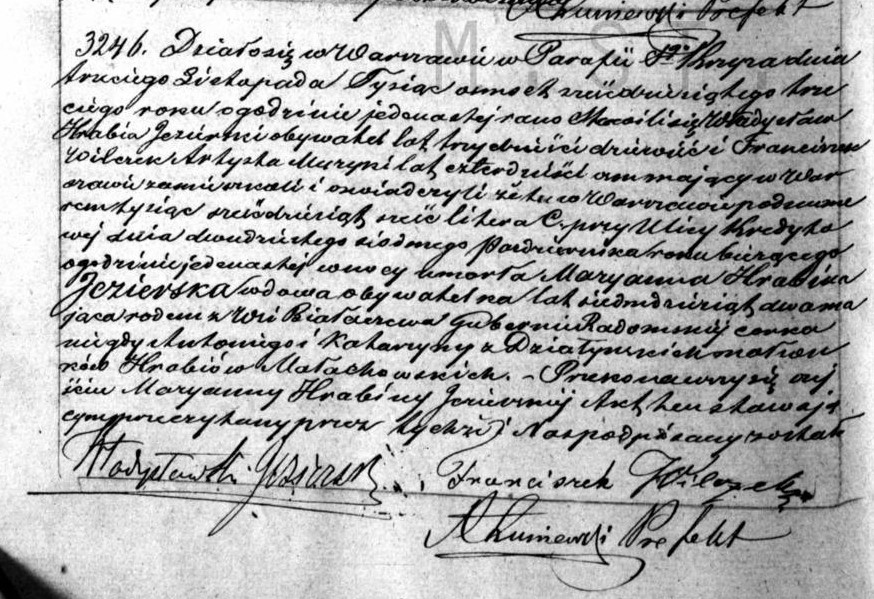 Akuniewski Prefekt
3246. Działosię w Warszawie w Parafii Sgo Krzyża dnia
trzeciego Listopada Tysiąc osmset sześćdziesiątego trze
ciego roku ogodzinie jedenastej rano Stawili się Władysław
Hrabia Jezierski obywatel lat trzydzieści dziewięć i Franciszek
Wilczek Artysta Muzyki lat czterdzieści osm mający w War
szawie zamieszkali i oswiadczyli żetu w Warszawie podnume
rem tysiąc sześćdziesiąt sześć litera C przy Ulicy Kredyto
wej dnia dwudziestego siodmego Pazdziernika roku bieżącego
ogodzinie jedenastej wnocy umarła Maryanna Hrabina
Jezierska wdowa obywatelka lat siedmdziesiąt dwa ma
jąca rodem z Wsi Białaczewa Gubernii Radomskiej corka
niegdy Antoniego i Katarzyny z Działyńskich małżon
ków Hrabiów Małachowskich. – Przekonawszy się o zej
ściu Maryanny Hrabiny Jezierskiej Akt ten stawają
cym przeczytany przez tychże i Nas podpisany został
Władysław Hr Jezierski Franciszek Wilczek
Akuniewski Prefekt